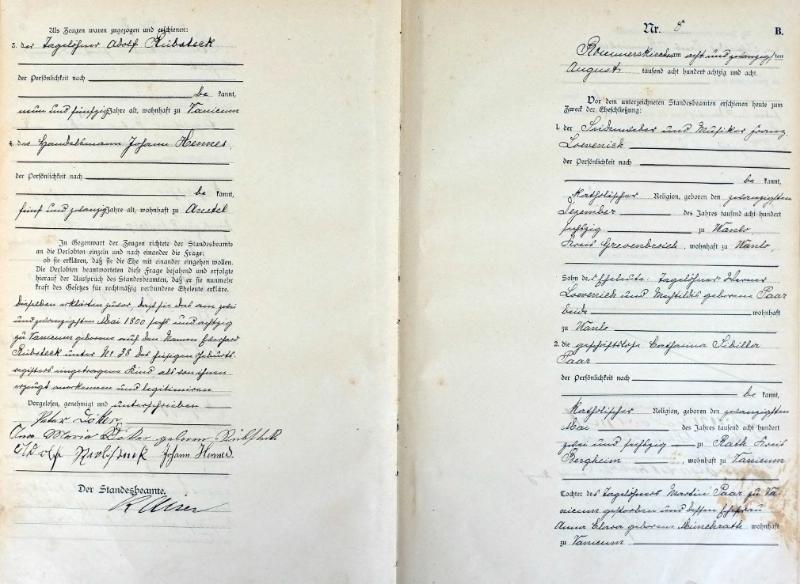 Als Zeugen waren zugezogen und erschienen:
3. der Tagelöhner Adolf Rübsteck
der Persönlichkeit nach
be kannt,
neun und fünfzig Jahre alt, wohnhaft zu Vanicum
4. der Handelsmann Johann Hennes
der Persönlichkeit nach
be kannt,
fünf und zwanzig Jahre alt, wohnhaft zu Anstel
In Gegenwart der Zeugen richtete der Standesbeamte
an die Verlobten einzeln und nach einander die Frage:
ob sie erklären, daß sie die Ehe mit einander eingehen wollen.
Die Verlobten beantworteten diese Frage bejahend und erfolgte
hierauf der Ausspruch des Standesbeamten, daß er sie nunmehr
kraft des Gesetzes für rechtmäßig verbundene Eheleute erkläre.
Dieselben erklärten zuvor, daß sie das am zwei
und zwanzigsten Mai 1800 sechs und achtzig
zu Vanicum geborene auf den Namen Eberhard
Rübsteck unter Nr. 38 des hiesigen Geburts-
registers eingetragene Kind als von ihnen
erzeugt anerkennen und legitimiren
Vorgelesen, genehmigt und unterschrieben
Peter
Anna Maria geborene Rübsteck
Adolf Rübsteck Johann Hennes
Der Standesbeamte.
Nr. 8 B.
Rommerskirchen am acht und zwanzigsten
August tausend acht hundert achtzig und acht.
Vor dem unterzeichneten Standesbeamten erschienen heute zum
Zweck der Eheschließung:
1. der Seidenweber und Musiker Franz
Loevenich
der Persönlichkeit nach
be kannt,
katholischer Religion, geboren den zwanzigsten
Dezember des Jahres tausend acht hundert
sechzig zu Wanlo,
Kreis Grevenbroich, wohnhaft zu Wanlo,
Sohn der Eheleute: Tagelöhner Werner
Loevenich und Mechtildis geborene Paar
beide wohnhaft
zu Wanlo
2. die geschäftslose Catharina Sibilla
Paar
der Persönlichkeit nach
be kannt,
katholischer Religion, geboren den zwanzigsten
Mai des Jahres tausend acht hundert
zwei und sechzig zu Rath Kreis
Bergheim, wohnhaft zu Vanicum
Tochter des Tagelöhners Martin Paar zu Va-
nicum gestorben und dessen Ehefrau
Anna Clara geborene Münchrath wohnhaft
zu Vanicum